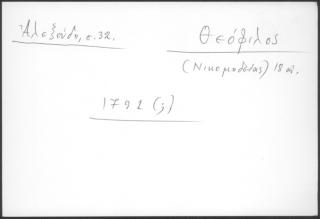 Ἀλεξούδη, σ. 32.
Θεόφιλος
(Νικομηδείας) 18 αἰ.
1792 (;)